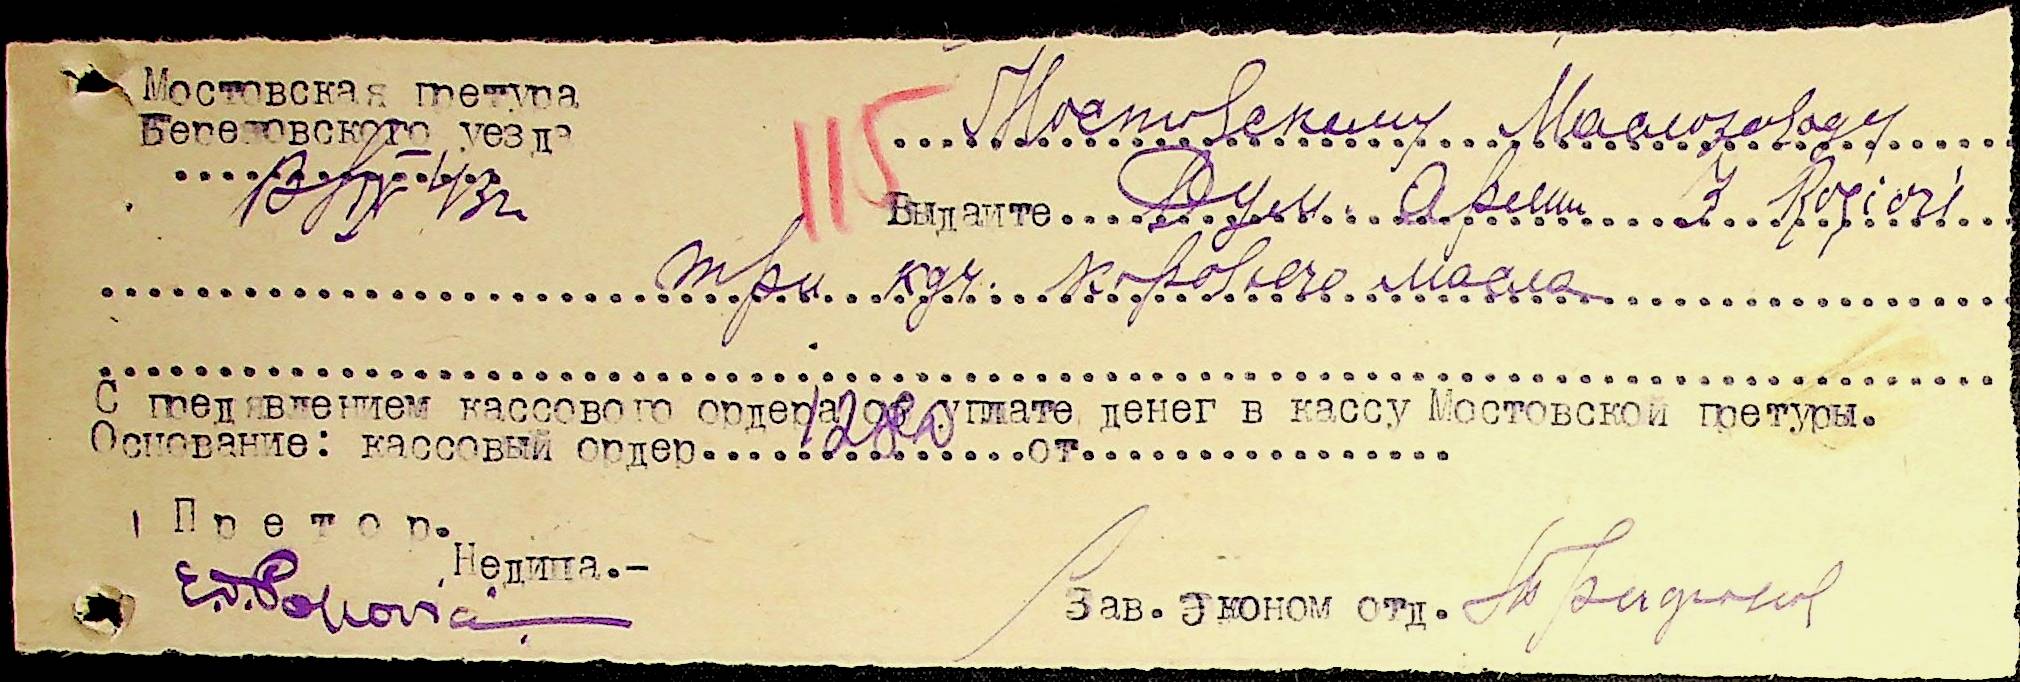 Мостовская претура
Березовского уезда
13/IV 43г
115
Мостовскому Маслозаводу
Выдайте Рум. Армии 3 Roșiori
три кгч. коровьего масла
С предявлением кассового ордера об уплате денег в кассу Мостовской претуры.
Основание: кассовый ордер 128 от
Претор.
Недина.-
Зав. Эконом отд.